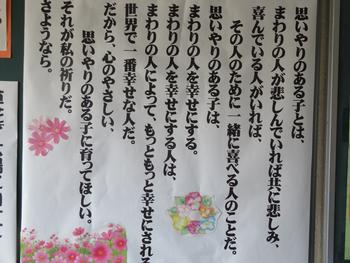 思いやりのある子とは、
まわりの人が悲しんでいれば共に悲しみ、
喜んでいる人がいれば、
その人のために一緒に喜べる人のことだ。
思いやりのある子は、
まわりの人を幸せにする。
まわりの人を幸せにする人は、
まわりの人によって、もっともっと幸せにされる
世界で一番幸せな人だ。
だから、心のやさしい、
思いやりのある子に育ってほしい。
それが私の祈りだ。
さようなら。